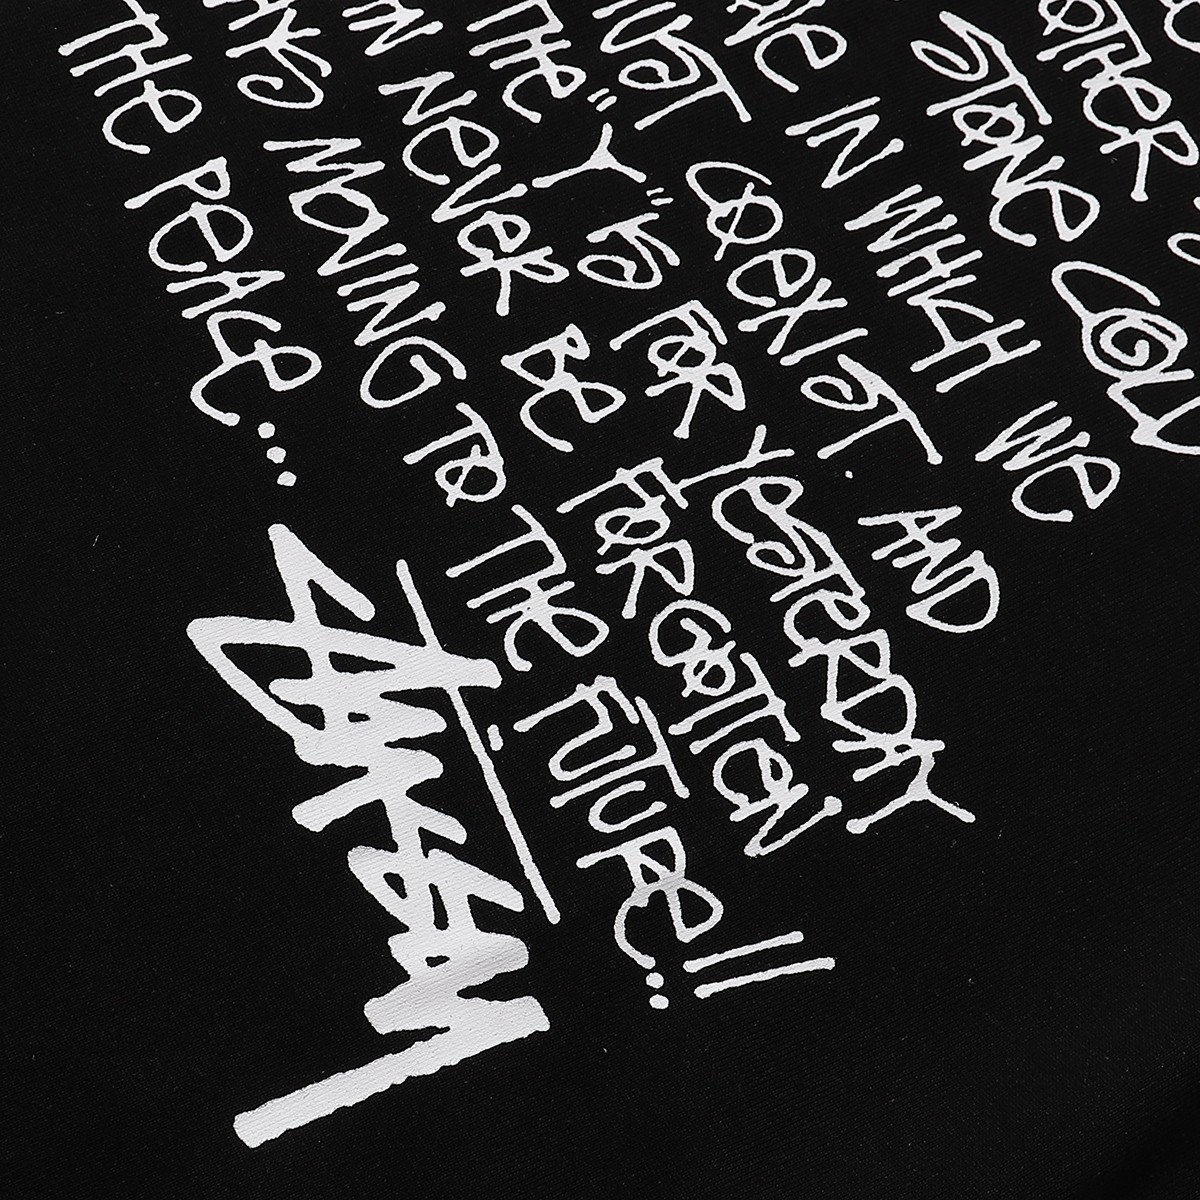 OTHER
STONE COLD
IN WHICH WE
MUST COEXIST. AND
THE "Y" IS FOR YESTERDAY
NEVER BE FORGOTTEN
MOVING TO THE FUTURE!!
THE PEACE...